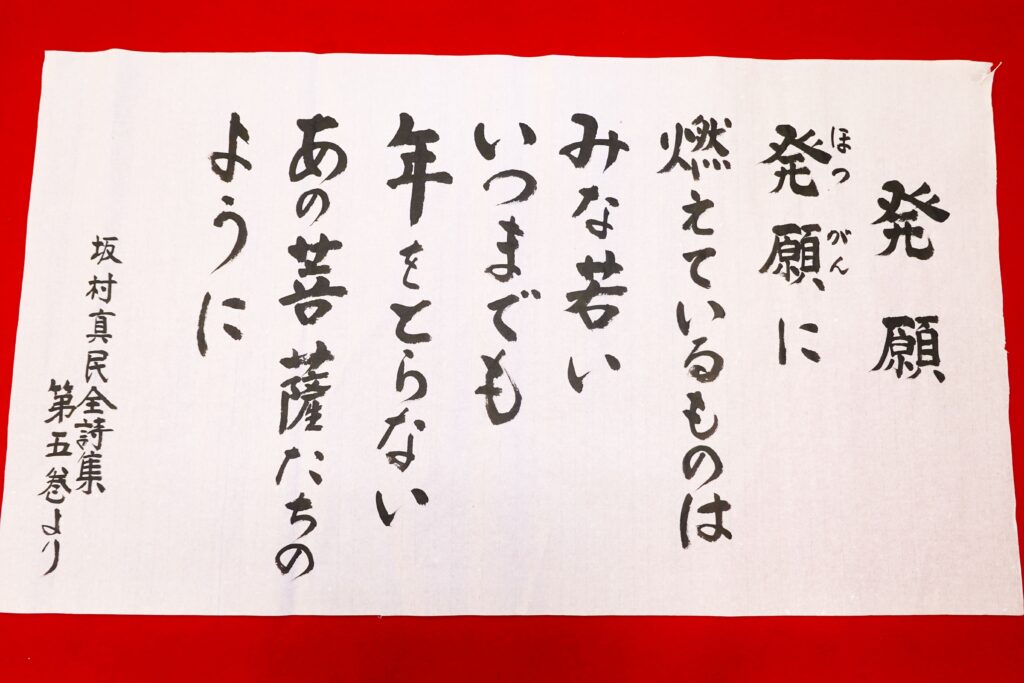 発願
発願に
ほつがん
燃えているものは
みな若い
いつまでも
年をとらない
あの菩薩たちの
ように
坂村真民全詩集
第五巻より